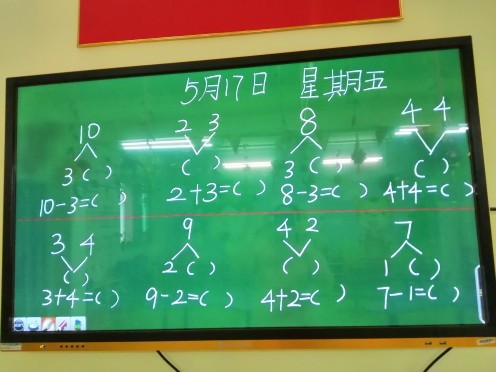 5月17日 星期五
10 2 3 8 4 4
3 ( ) ( ) 3 ( ) ( )
10-3=( ) 2+3=( ) 8-3=( ) 4+4=( )
3 4 9 4 2 7
( ) 2 ( ) ( ) 1 ( )
3+4=( ) 9-2=( ) 4+2=( ) 7-1=( )